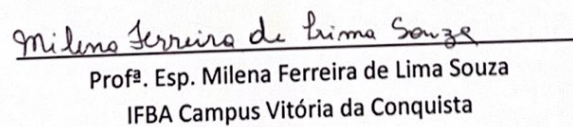 Milena Ferreira de Lima Souza
Profª. Esp. Milena Ferreira de Lima Souza
IFBA Campus Vitória da Conquista